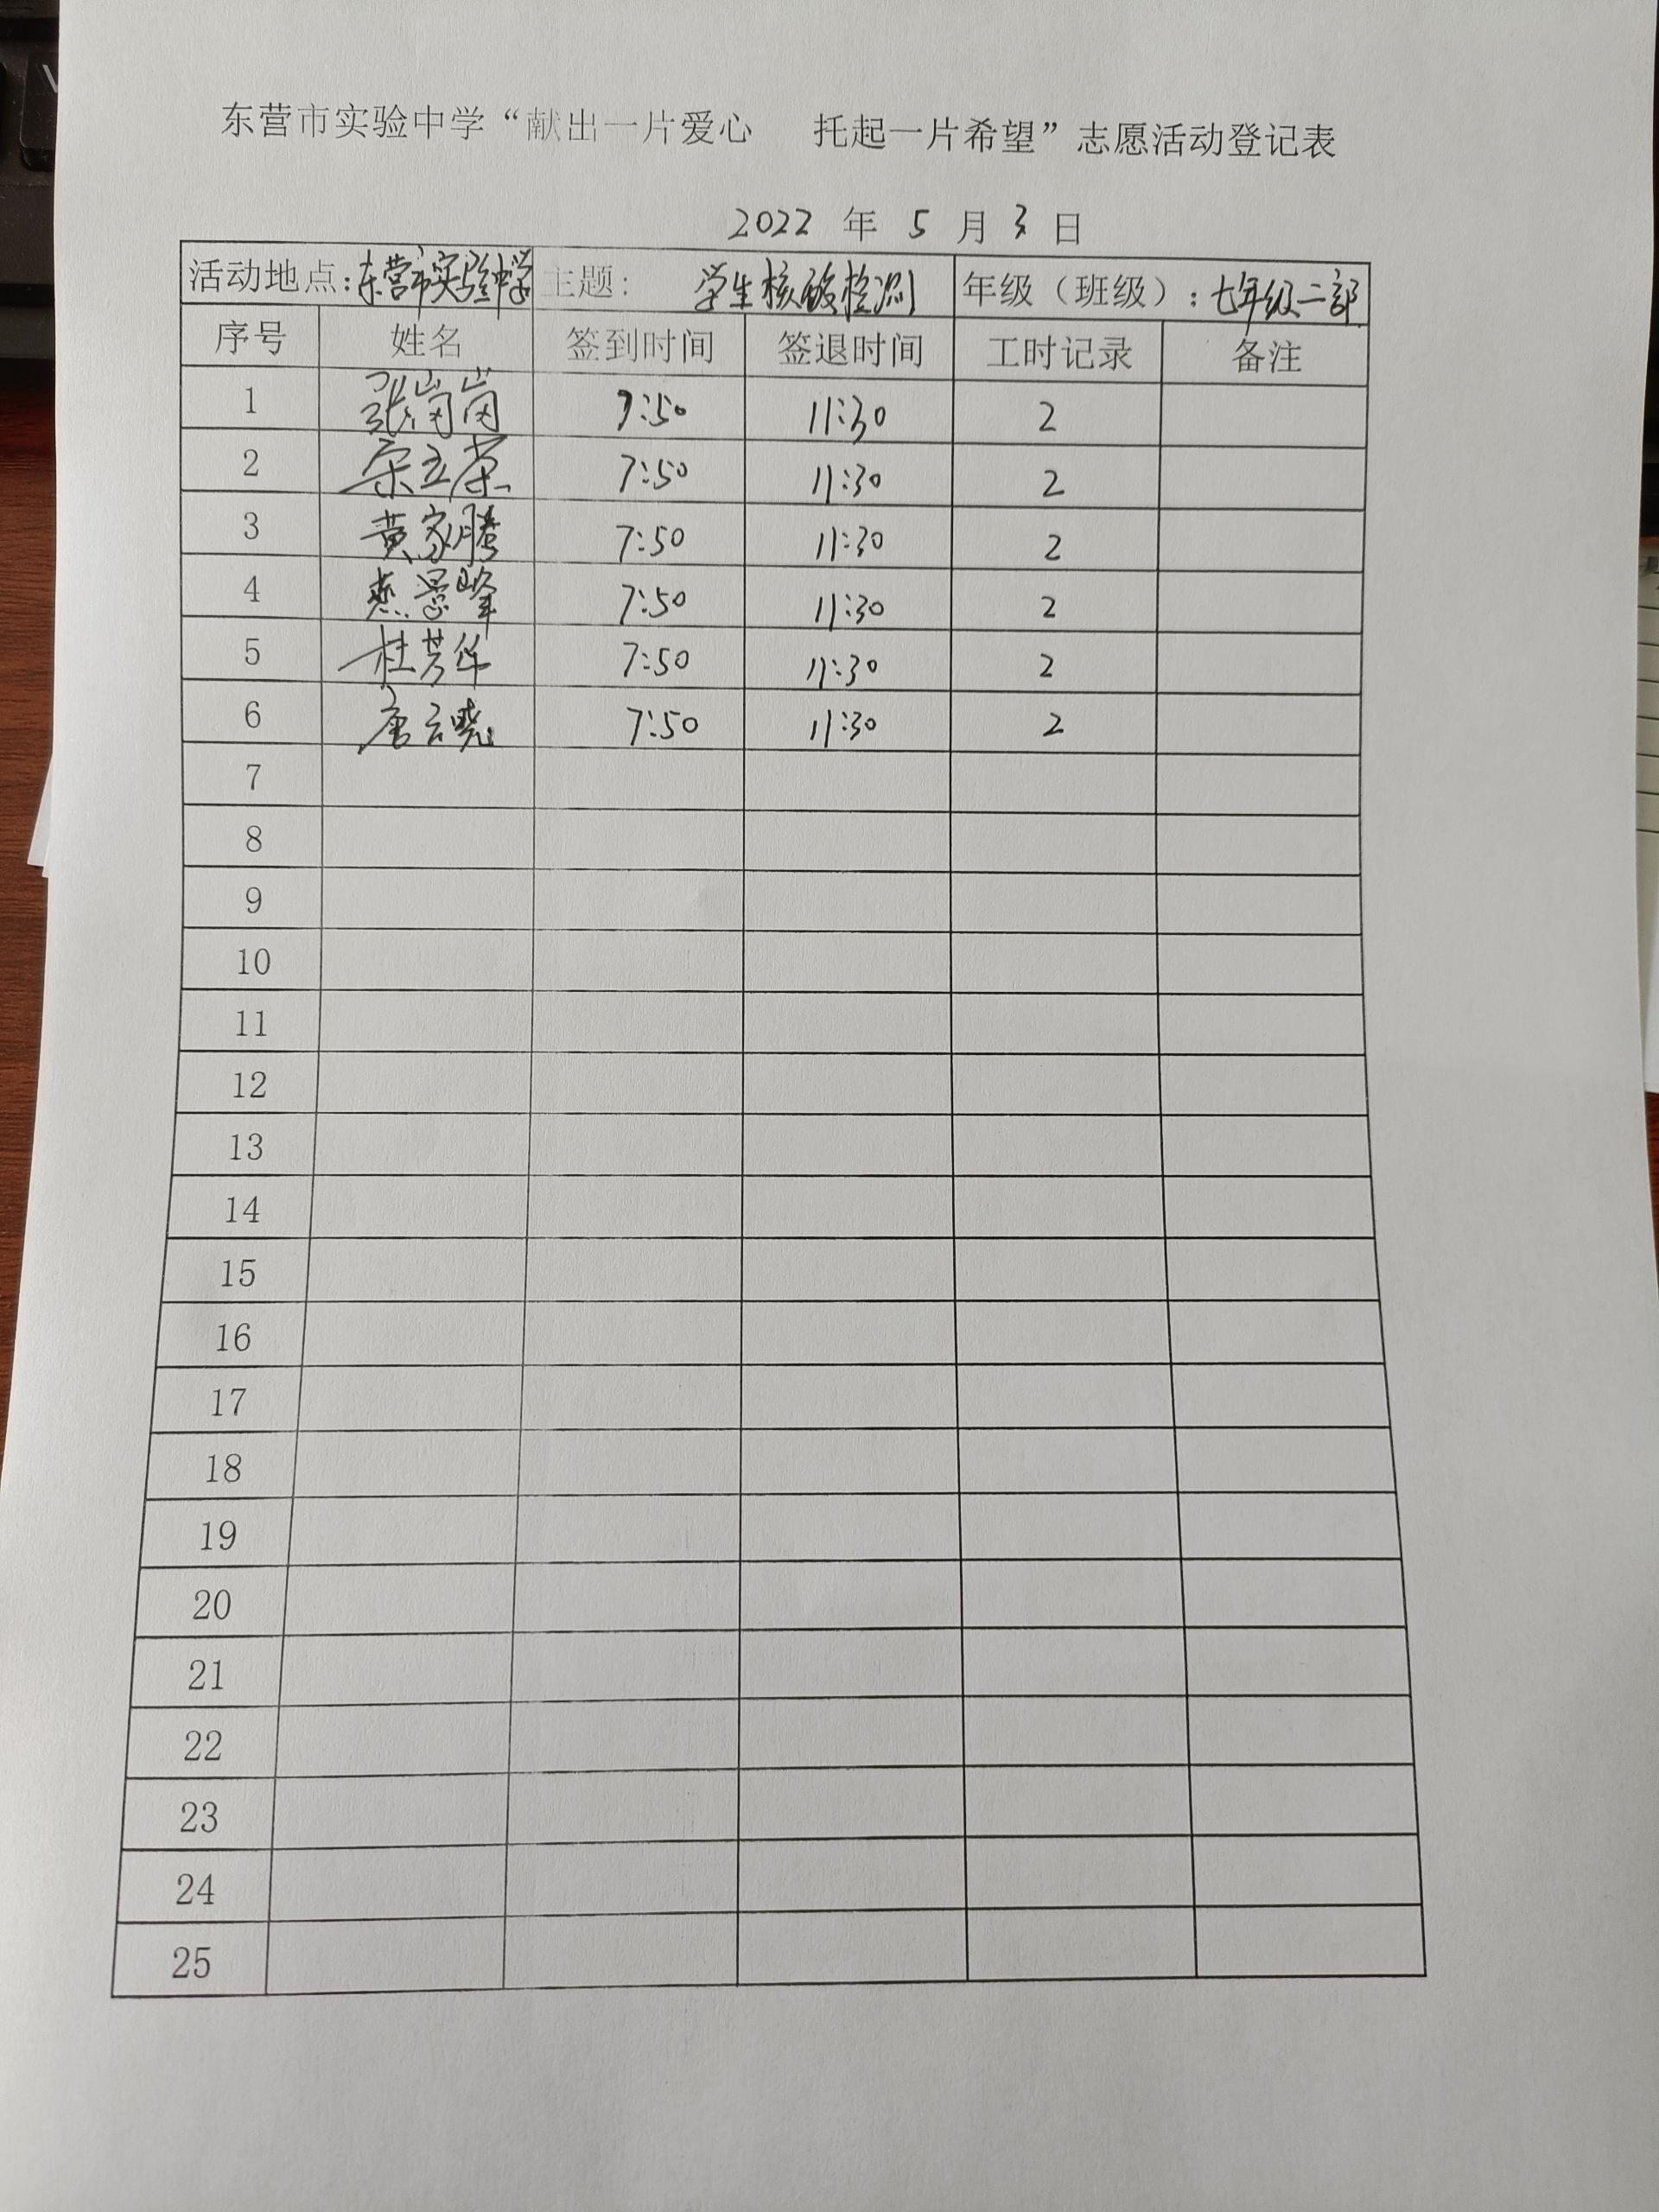 东营市实验中学“献出一片爱心 托起一片希望”志愿活动登记表
2022 年 5 月 3 日
活动地点：东营市实验中学 主题： 学生核酸检测 年级（班级）：七年级二部
序号 姓名 签到时间 签退时间 工时记录 备注
1 张岗岗 7:50 11:30 2
2 宋立荣 7:50 11:30 2
3 黄家腾 7:50 11:30 2
4 燕景峰 7:50 11:30 2
5 杜芳华 7:50 11:30 2
6 唐云晓 7:50 11:30 2
7
8
9
10
11
12
13
14
15
16
17
18
19
20
21
22
23
24
25